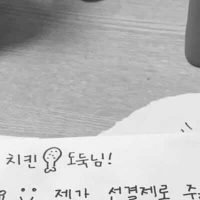 치킨 도둑님!
제가 선결제로